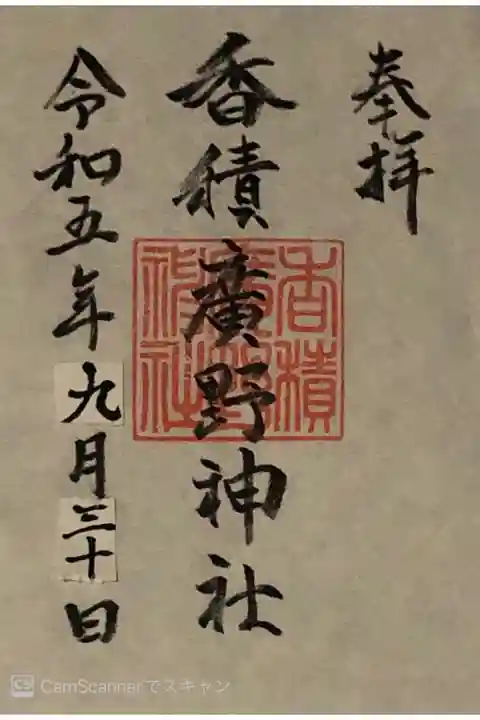 奉拝
香積廣野神社
香積
廣野
神社
令和五年九月三十日
CamScannerでスキャン